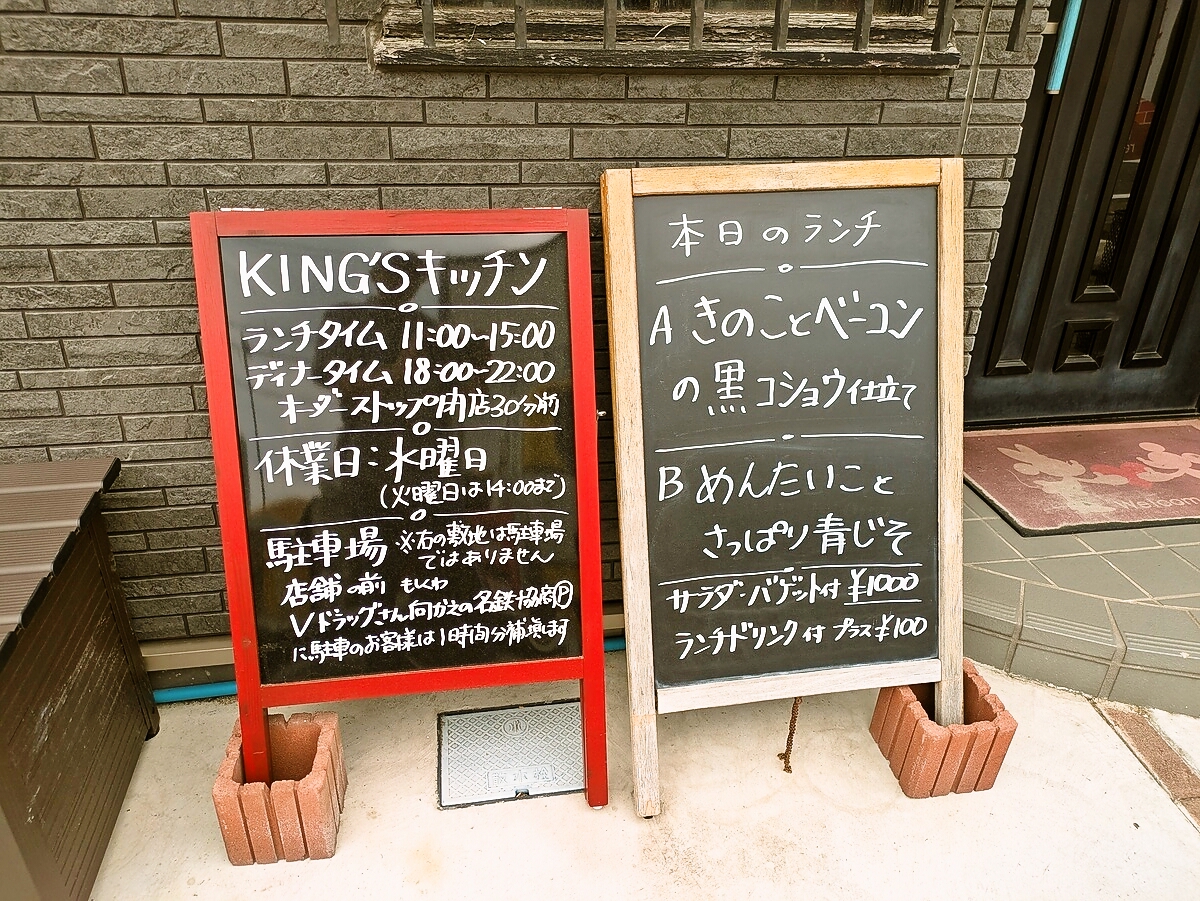 KING'Sキッチン
ランチタイム 11:00〜15:00
ディナータイム 18:00〜22:00
オーダーストップ閉店30分前
休業日:水曜日
(火曜日は14:00まで)
駐車場 ※右の敷地は駐車場
ではありません
店舗の前 もしくわ
Vドラッグさん向かえの名鉄協商Ⓟ
に駐車のお客様は1時間分補填します
本日のランチ
A きのことベーコン
の黒コショウ仕立て
B めんたいこと
さっぱり青じそ
サラダ・バゲット付 ¥1000
ランチドリンク付 プラス¥100
Welcome